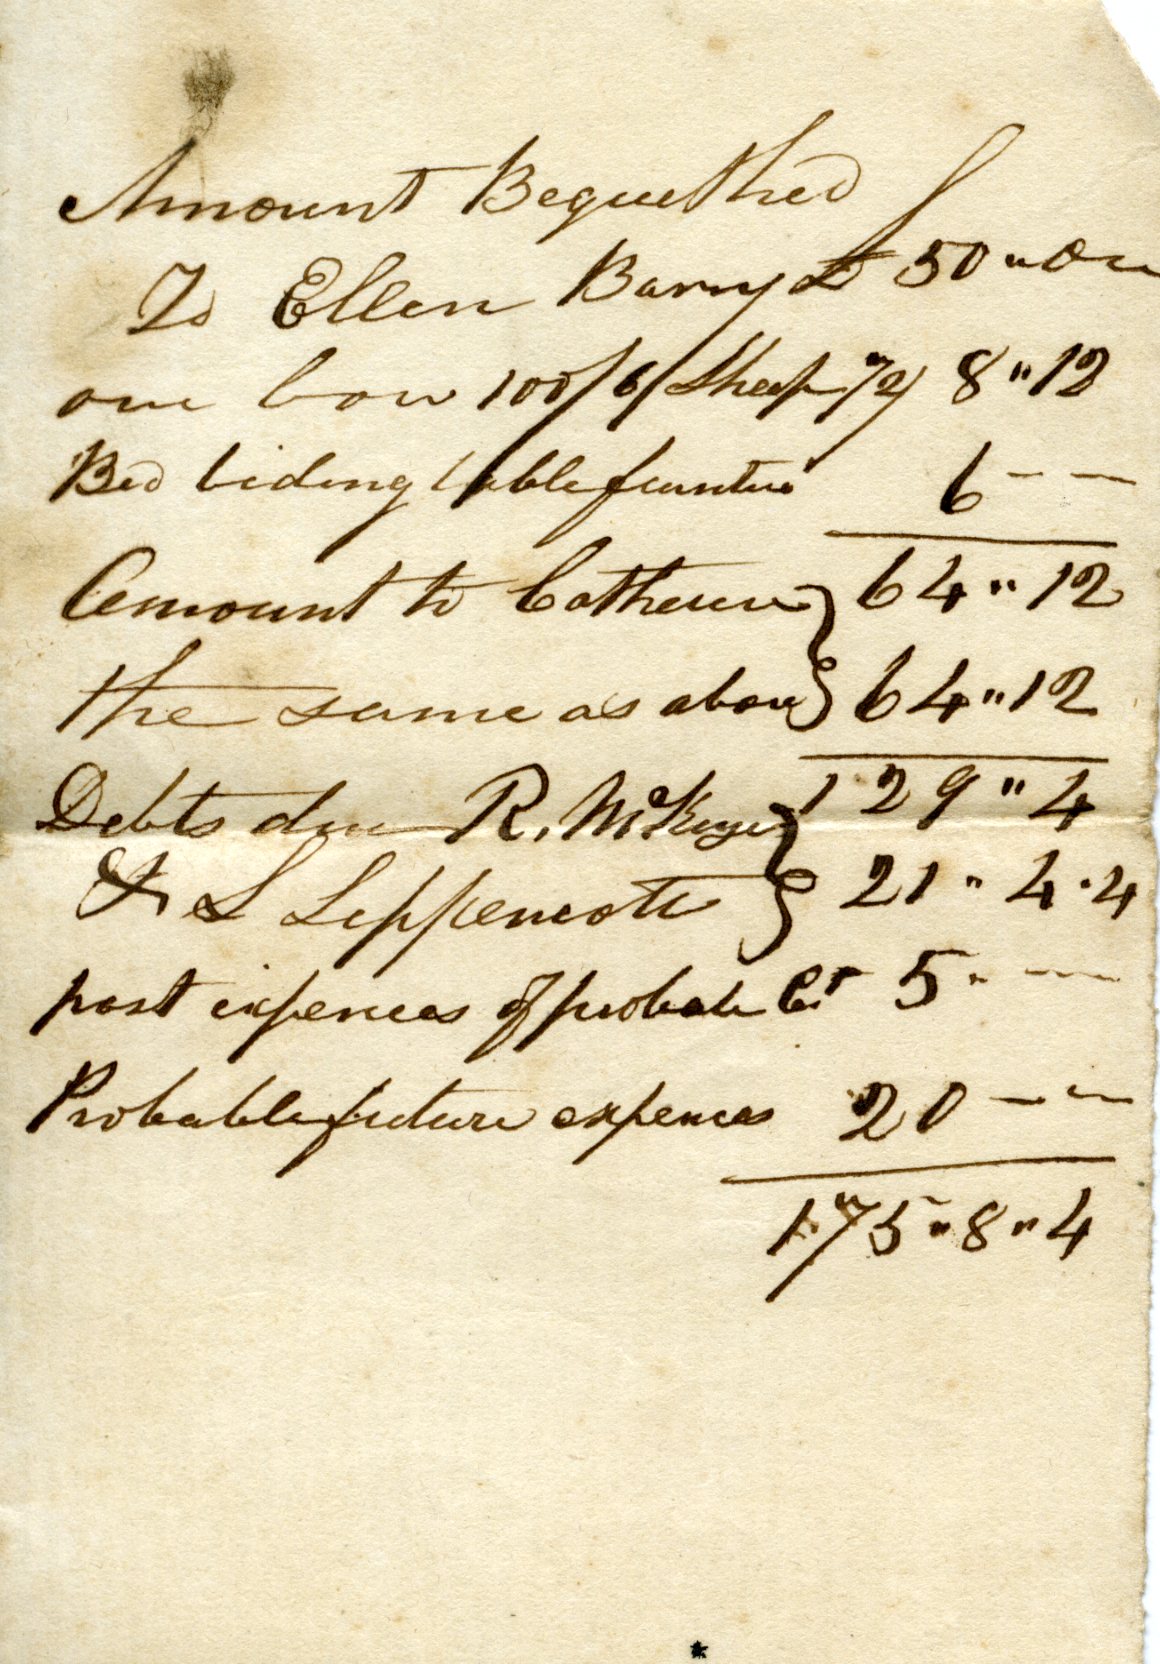 Amount Bequethed
To Ellen Barry £ 50 " 0 "
one Cow 100/ 6/ Sheep 72/ 8 " 12
Bed biding table furntur 6 - -
Amount to Catherine } 64 " 12
the same as above } 64 " 12
129 " 4
Debts due R. McKaye }
& S Leppencott } 21 " 4 " 4
past expences of probate Ct 5 " - -
Probable future expences 20 - -
175 " 8 " 4